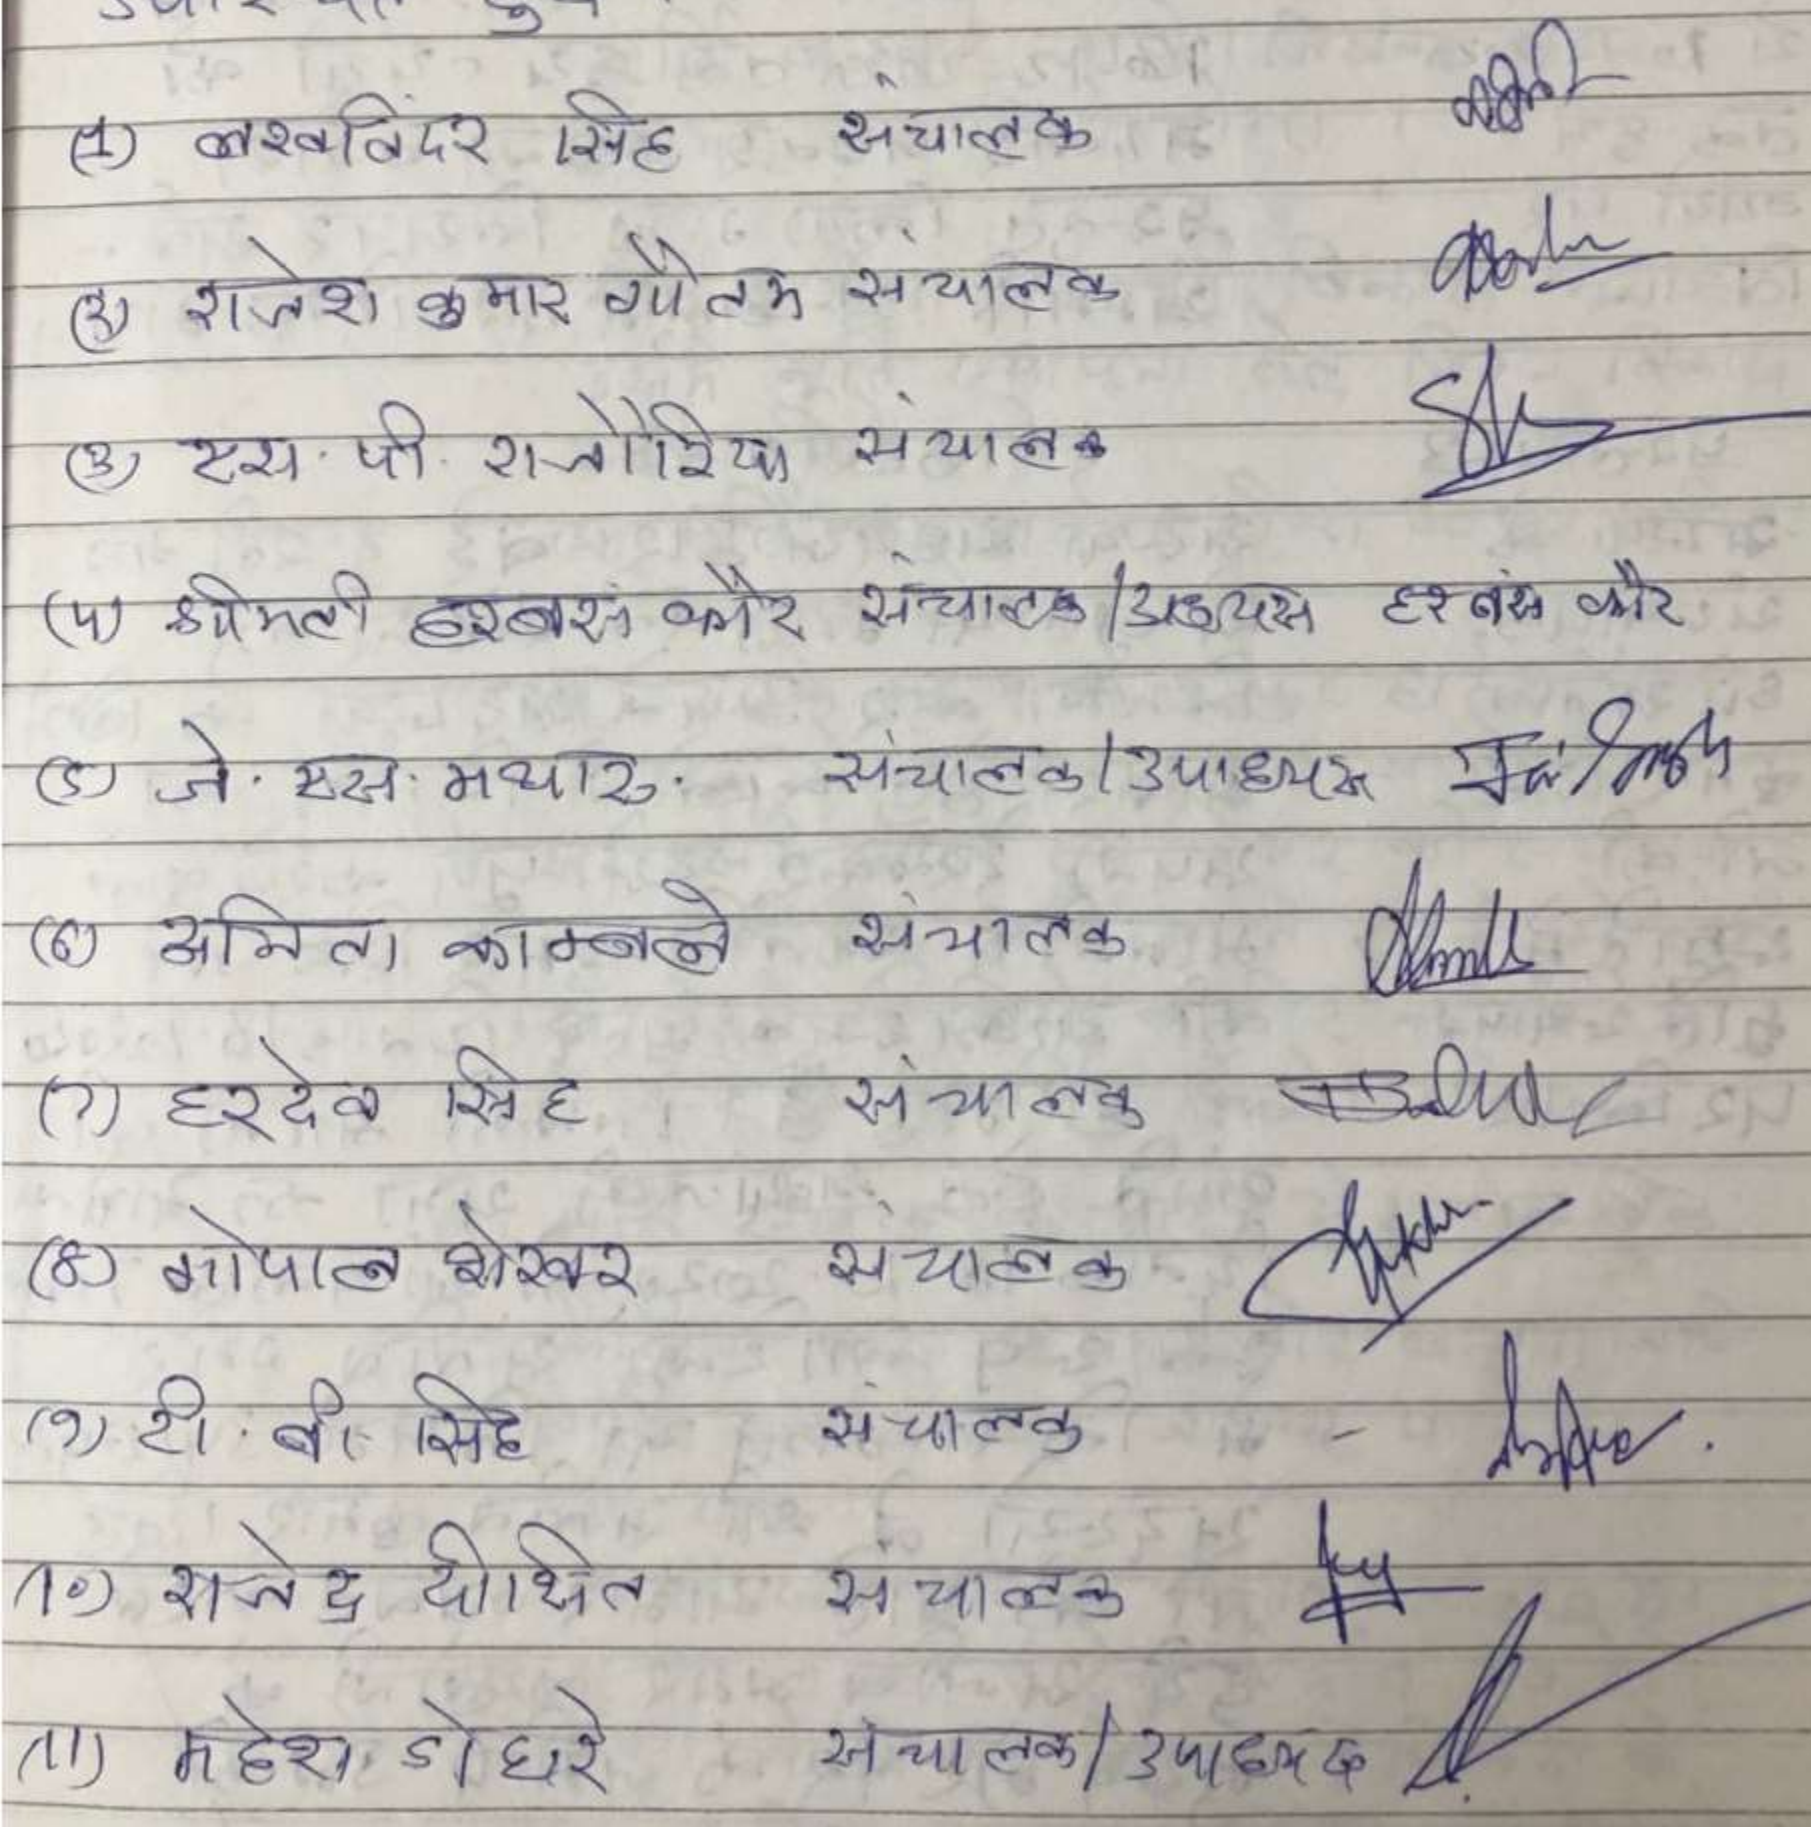 (1) लखविंदर सिंह संचालक
(2) राजेश कुमार गौतम संचालक
(3) एस. पी. राजौरिया संचालक
(4) श्रीमती हरबंस कौर संचालक/अध्यक्ष हरबंस कौर
(5) जे. एस. मथारू. संचालक/उपाध्यक्ष
(6) अमिता काम्बले संचालक
(7) हरदेव सिंह संचालक
(8) गोपाल शेखर संचालक
(9) टी. बी. सिंह संचालक -
(10) राजेंद्र दीक्षित संचालक
(11) महेश डोंघरे संचालक/उपाध्यक्ष